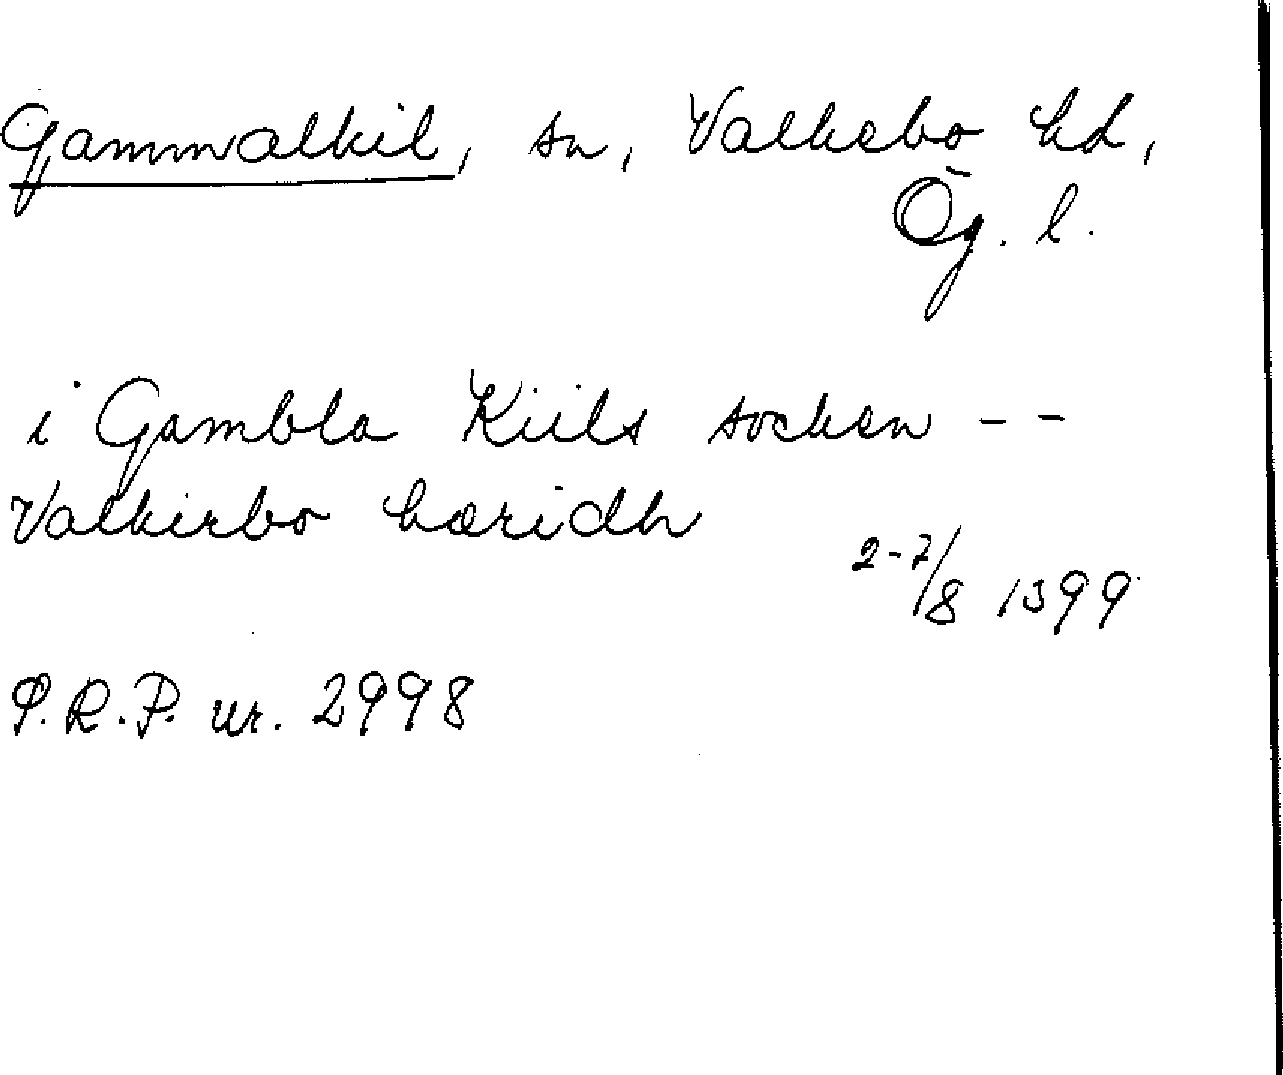 Gammalkil, sn, Valkebo hd,
Ög. l.
i Gambla Kiils sochen - -
Valkirbo hæridh
2-7/8 1399
P.R.P. nr. 2998